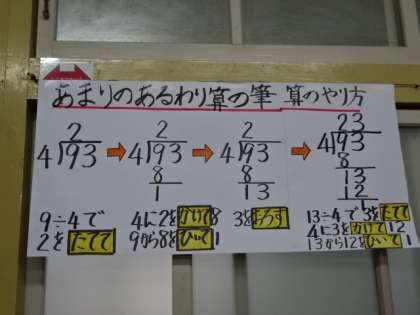 あまりのあるわり算の筆算のやり方
2
4)93
2
4)93
8
1
2
4)93
8
13
23
4)93
8
13
12
1
9÷4で
2をたてて
4に2をかけて8
9から8をひいて1
3をおろす
13÷4で3をたてて
4に3をかけて12
13から12をひいて1